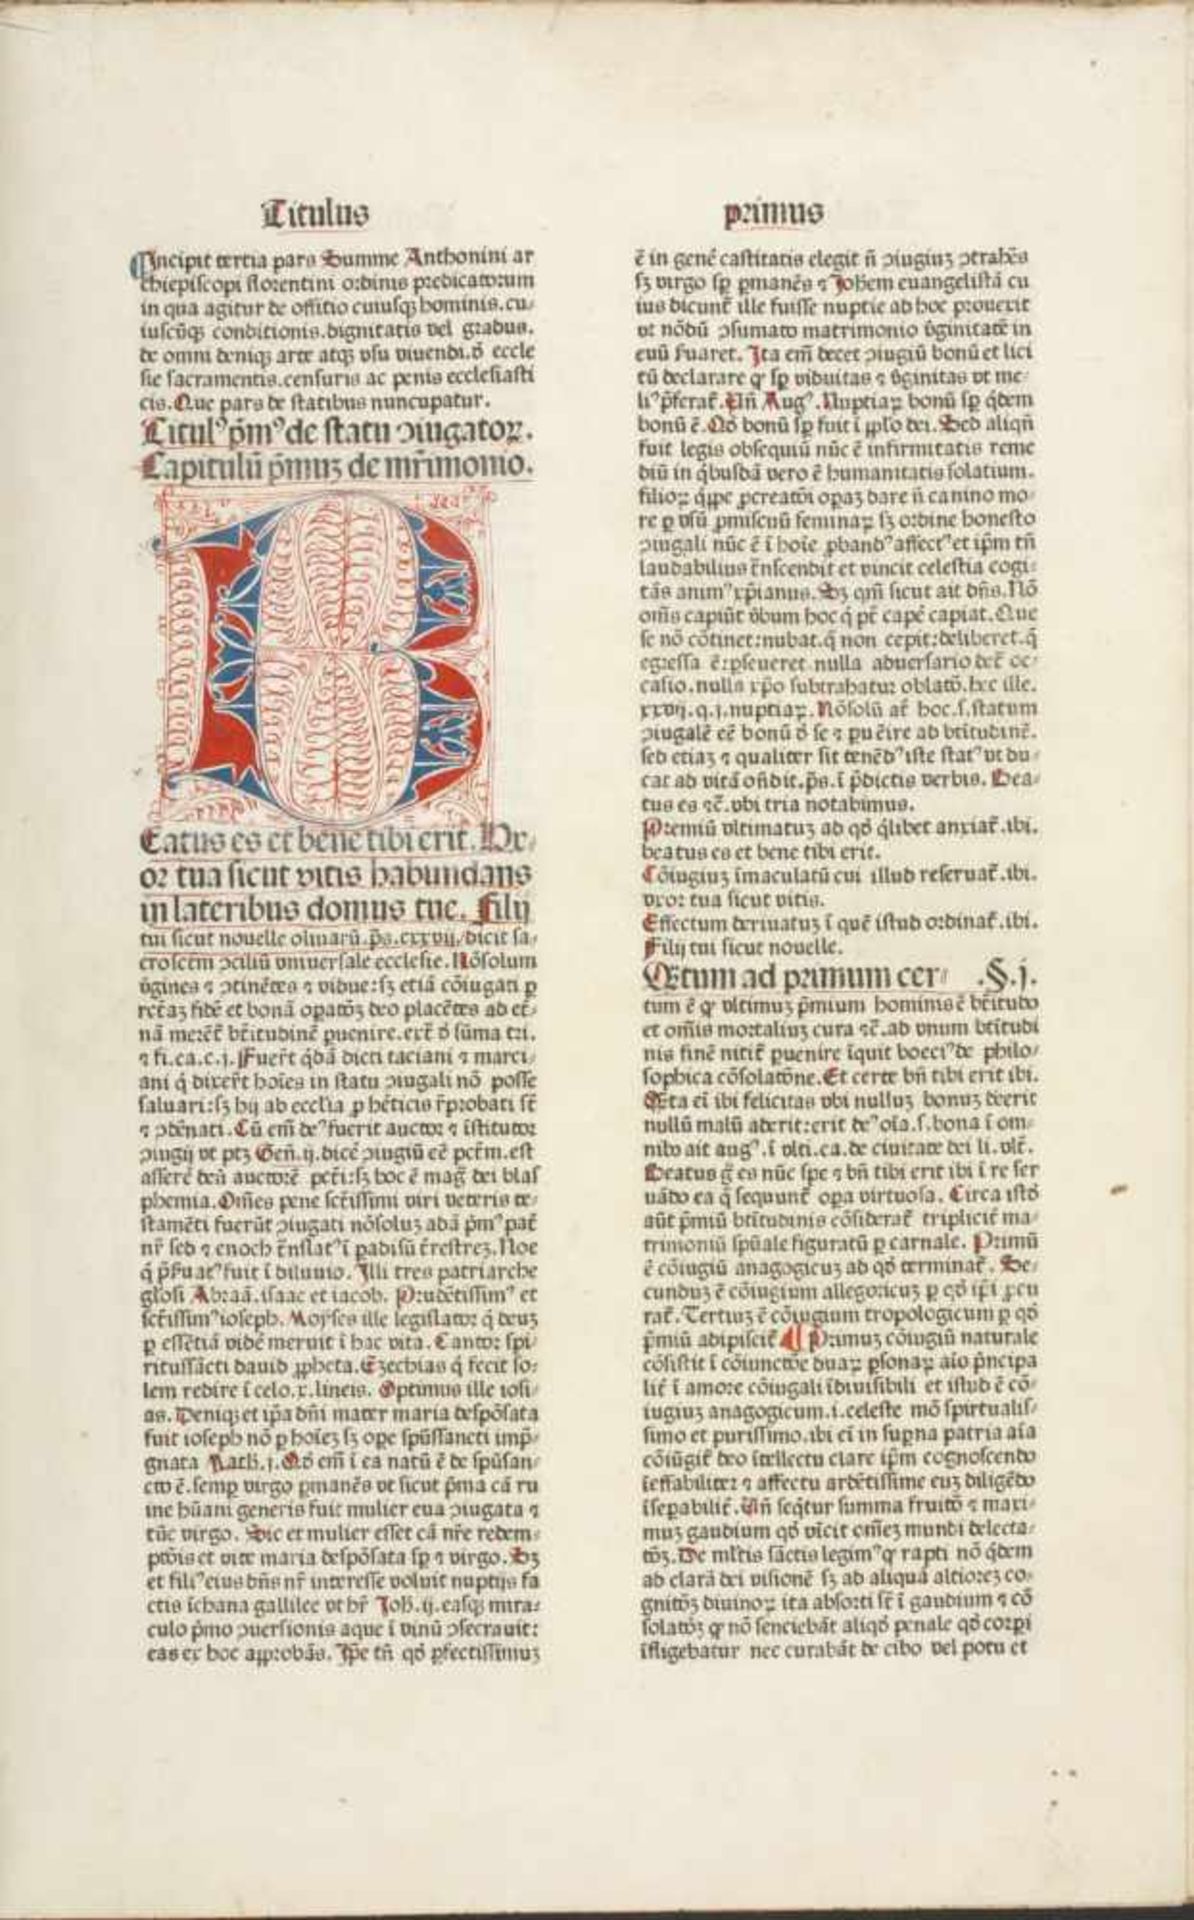 Titulus primus
Incipit tertia pars Summe Anthonini ar
chiepiscopi florentini ordinis predicatorum
in qua agitur de offitio cuiusqꝫ hominis. cu⸗
iuscūqꝫ conditionis. dignitatis vel gradus.
de omni deniqꝫ arte atqꝫ vsu viuendi. ꝺ̄ eccle
sie sacramentis. censuris ac penis ecclesiasti
cis. Que pars de statibus nuncupatur.
Titulꝰ p̄mꝰ de statu ↄiugatoꝝ.
Capitulū p̄muꝫ de mr̄imonio.
B
Eatus es et bene tibi erit. Vx⸗
or tua sicut vitis habundans
in lateribus domus tue. Filij
tui sicut nouelle oliuarū. ps̄. cxxvij. dicit sa⸗
crosctm̄ ↄciliū vniuersale ecclesie. Nōsolum
v̄gines ⁊ ↄtinētes ⁊ vidue: sꝫ etiā cōiugati ꝑ
rectāꝫ fidē et bonā oꝑatōꝫ deo placētes ad et̄⸗
nā meret̄ bt̄itudinē ꝑuenire. ext̄ ꝺ̄ sūma tri.
⁊ fi. ca. c. j. Fuer̄t q̇dā dicti taciani ⁊ marci⸗
ani q̇ dixer̄t hoīes in statu ↄiugali nō posse
saluari: sꝫ hij ab ecclīa ꝑ hēticis r̄probati st̄
⁊ ↄdēnati. Cū em̄ deꝰ fuerit auctor ⁊ īstitutor
ↄiugij vt ptꝫ Gen̄. ij. dicē ↄiugiū eē pctm̄. est
asserē deū auctorē pcti: sꝫ hoc ē maḡ dei blas
phemia. Om̄es pene sct̄issimi viri veteris te⸗
stamēti fuerūt ↄiugati nōsoluꝫ adā p̄mꝰ pat̄
nr̄ sed ⁊ enoch t̄nslatꝰ ī padisū t̄restreꝫ. Noe
q̇ p̄ẜuatꝰ fuit ī diluuio. Illi tres patriarche
gl̄osi Abraā. isaac et iacob. Prudētissimꝰ et
sct̄issimꝰ ioseph. Moyses ille legislator q̇ deuꝫ
ꝑ essētiā vidē meruit ī hac vita. Cantor spi⸗
ritussācti dauid ꝓpheta. Ezechias q̇ fecit so⸗
lem redire ī celo. x. lineis. Optimus ille iosi⸗
as. Deniqꝫ et ip̄a dn̄i mater maria despōsata
fuit ioseph nō ꝑ hoīeꝫ sꝫ ope spūssancti imp̄⸗
gnata Math. j. Qꝺ̄ em̄ ī ea natū ē de spūsan⸗
cto ē. semꝑ virgo ꝑmanēs vt sicut p̄ma cā ru
ine hūani generis fuit mulier eua ↄiugata ⁊
tūc virgo. Sic et mulier esset cā nr̄e redem⸗
ptōis et vite maria despōsata sꝑ ⁊ virgo. Sꝫ
et filiꝰ eius dn̄s nr̄ interesse voluit nuptijs fa
ctis ī chana gallilee vt hr̄ Joh̄. ij. easqꝫ mira⸗
culo p̄mo ↄuersionis aque ī vinū ↄsecrauit:
eas ex hoc aꝓbās. Ip̄e tn̄ qꝺ̄ ꝑfectissimuꝫ
ē in genē castitatis elegit n̄ ↄiugiuꝫ ↄtrahēs
sꝫ virgo sꝑ ꝑmanēs ⁊ Joh̄em euangelistā cu
ius dicunt̄ ille fuisse nuptie ad hoc prouexit
vt nōdū ↄsumato matrimonio v̄ginitatē in
euū ẜuaret. Ita em̄ decet ↄiugiū bonū et lici
tū declarare qꝫ sꝑ viduitas ⁊ v̄ginitas vt me⸗
liꝰ p̄ferat̄. Vn̄ Augꝰ. Nuptiaꝝ bonū sꝑ q̇dem
bonū ē. Qꝺ̄ bonū sꝑ fuit ī pp̄lo dei. Sed aliqn̄
fuit legis obsequiū nūc ē infirmitatis reme
diū in q̇busdā vero ē humanitatis solatium.
filioꝝ q̇ppe ꝓcreatōi oꝑaꝫ dare n̄ canino mo⸗
re ꝑ vsū ꝓmiscuū feminaꝝ sꝫ ordine honesto
ↄiugali nūc ē ī hoīe ꝓbandꝰ affectꝰ et ip̄m tn̄
laudabilius t̄nscendit et vincit celestia cogi⸗
tās animꝰ xp̄ianus. Sꝫ qm̄ sicut ait dn̄s. Nō
om̄s capiūt v̄bum hoc q̇ pt̄ capē capiat. Que
se nō cōtinet: nubat. q̄ non cepit: deliberet. q̄
egressa ē: ꝑseueret nulla aduersario det̄ oc⸗
casio. nulla xp̄o subtrahatur oblatō. hec ille.
xxvij. q. j. nuptiaꝝ. Nōsolū at̄ hoc. s. statum
ↄiugalē eē bonū ꝺ̄ se ⁊ ꝑuēire ad bt̄itudinē.
sed etiaꝫ ⁊ qualiter sit tenēdꝰ iste statꝰ vt du⸗
cat ad vitā on̄dit. ps̄. ī p̄dictis verbis. Bea⸗
tus es ⁊c̄. vbi tria notabimus.
Premiū vltimatuꝫ ad qꝺ̄ q̇libet anxiat̄. ibi.
beatus es et bene tibi erit.
Cōiugiuꝫ īmaculatū cui illud reseruat̄. ibi.
vxor tua sicut vitis.
Effectum deriuatuꝫ ī quē istud ordinat̄. ibi.
Filij tui sicut nouelle.
Qvātum ad primum cer⸗ .§. j.
tum ē qꝫ vltimuꝫ p̄mium hominis ē bt̄itudo
et om̄is mortaliuꝫ cura ⁊c̄. ad vnum btītudi
nis finē nitit̄ ꝑuenire īquit boeciꝰ de philo⸗
sophica cōsolatōne. Et certe bn̄ tibi erit ibi.
Qvāta eī ibi felicitas vbi nulluꝫ bonuꝫ deerit
nullū malū aderit: erit deꝰ oīa. s. bona ī om⸗
nibꝰ ait augꝰ. ī vlti. ca. de ciuitate dei li. vlt̄.
Beatus g̊ es nūc spe ⁊ bn̄ tibi erit ibi ī re ser
uādo ea q̄ sequunt̄ oꝑa virtuosa. Circa istō
aūt p̄miū btītudinis cōsiderat̄ triplicit̄ ma⸗
trimoniū spūale figuratū ꝑ carnale. Primū
ē cōiugiū anagogicuꝫ ad qꝺ̄ terminat̄. Se⸗
cunduꝫ ē cōiugium allegoricuꝫ ꝑ qꝺ̄ ip̄i ꝓcu
rat̄. Tertiuꝫ ē cōiugium tropologicum ꝑ qꝺ̄
p̄miū adipiscit̄ ¶ Primuꝫ cōiugiū naturale
cōsistit ī cōiunctōe duaꝝ ꝑsonaꝝ aīo p̄ncipa
lit̄ ī amore cōiugali īdiuisibili et istud ē cō⸗
iugiuꝫ anagogicum. i. celeste mō spirtualis⸗
simo et purissimo. ibi eī in suꝑna patria aīa
cōiūgit̄ deo ītellectu clare ip̄m cognoscendo
īeffabiliter ⁊ affectu ardētissime euꝫ diligēdo
īseꝑabilit̄. Vn̄ seq̇tur summa fruitō ⁊ maxi⸗
muꝫ gaudium qꝺ̄ vīcit om̄eꝫ mundi delecta⸗
tōꝫ. De ml̄tis sāctis legimꝰ qꝫ rapti nō q̇dem
ad clarā dei visionē sꝫ ad aliquā altioreꝫ co⸗
gnitōꝫ diuinoꝝ ita absorti st̄ ī gaudium ⁊ cō
solatōꝫ qꝫ nō senciebāt aliqꝺ̄ penale qꝺ̄ corꝑi
īfligebatur nec curabāt de cibo vel potu et